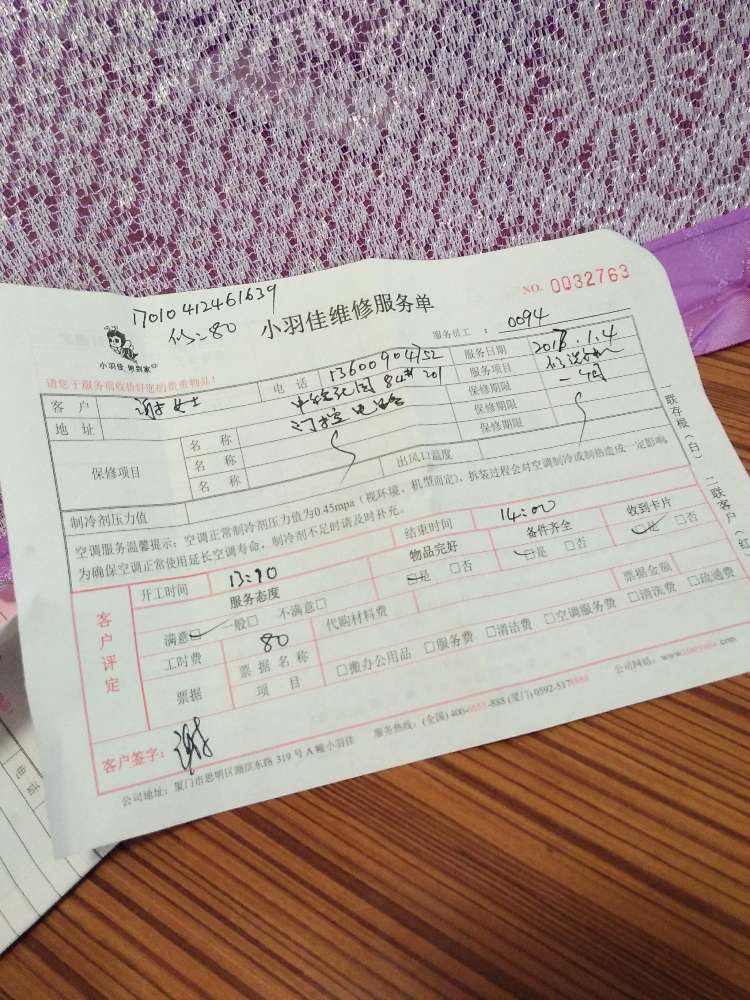 17010412461639
NO. 0032763
80
小羽佳维修服务单
服务员工 : 0094
小羽佳 帮到家
请您于服务前收拾好您的贵重物品!
客 户 谢女士 电 话 13600904752 服务日期 2018.1.4
地 址 84# 201 服务项目
保修项目
名 称 门控 保修期限 一个月
名 称 保修期限
名 称 保修期限
制冷剂压力值 出风口温度
空调服务温馨提示:空调正常制冷剂压力值为0.45mpa(视环境、机型而定),拆装过程会对空调制冷或制热造成一定影响
为确保空调正常使用延长空调寿命,制冷剂不足时请及时补充。
一联存根(白) 二联客户(红
客户评定
开工时间 13:10 结束时间 14:00
服务态度 物品完好 备件齐全 收到卡片
满意□ 一般□ 不满意□ □是 □否 □是 □否 □是 □否
工时费 80 代购材料费
票据 票据名称 票据金额
项 目 □搬办公用品 □服务费 □清洁费 □空调服务费 □清洗费 □疏通费
客户签字: 谢
公司地址:厦门市思明区湖滨东路 319 号 A 幢小羽佳 服务热线:(全国) 400-6655-888 (厦门) 0592-517 公司网站:
电话